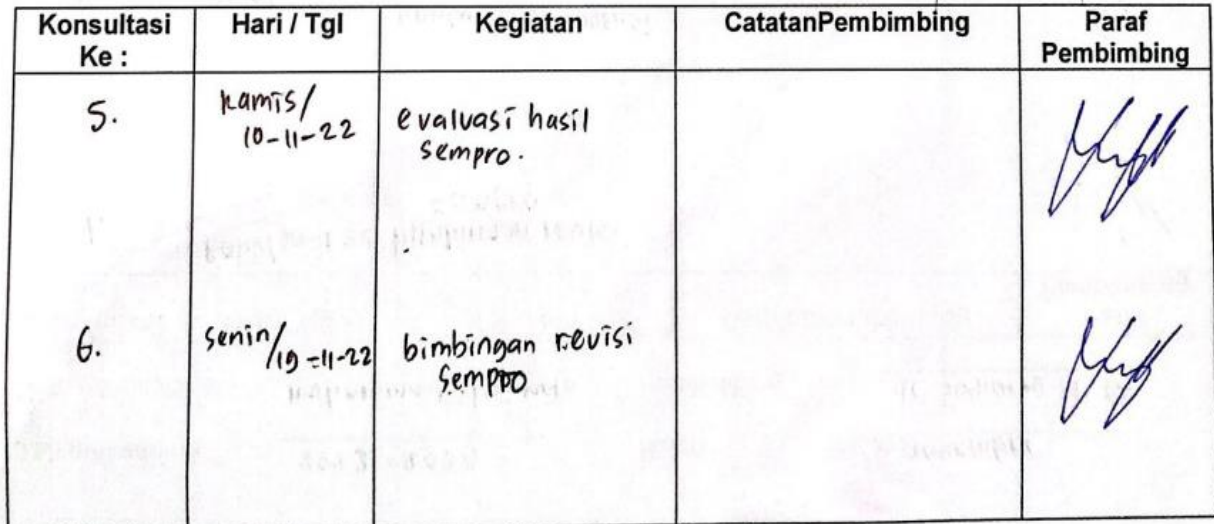 Konsultasi Ke : Hari / Tgl Kegiatan CatatanPembimbing Paraf Pembimbing
5. kamis/ evaluasi hasil
10-11-22 sempro.
6. senin/19-11-22 bimbingan revisi
sempro